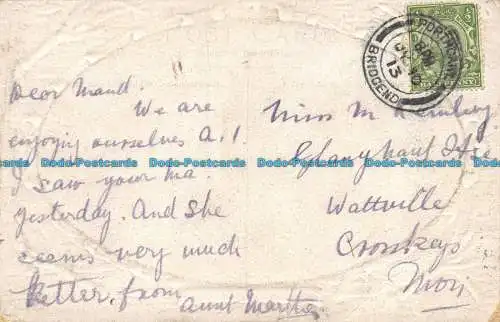 Dear Maud.
We are
enjoying ourselves A.1
I saw your ma.
yesterday. And she
seems very much
better, from
Aunt Martha
Miss M
Wattville
Crosskeys
Mon
PORTHCAWL
BRIDGEND
JY
13
Dodo-Postcards Dodo-Postcards Dodo-Postcards Dodo-Postcards Dodo-Postcards